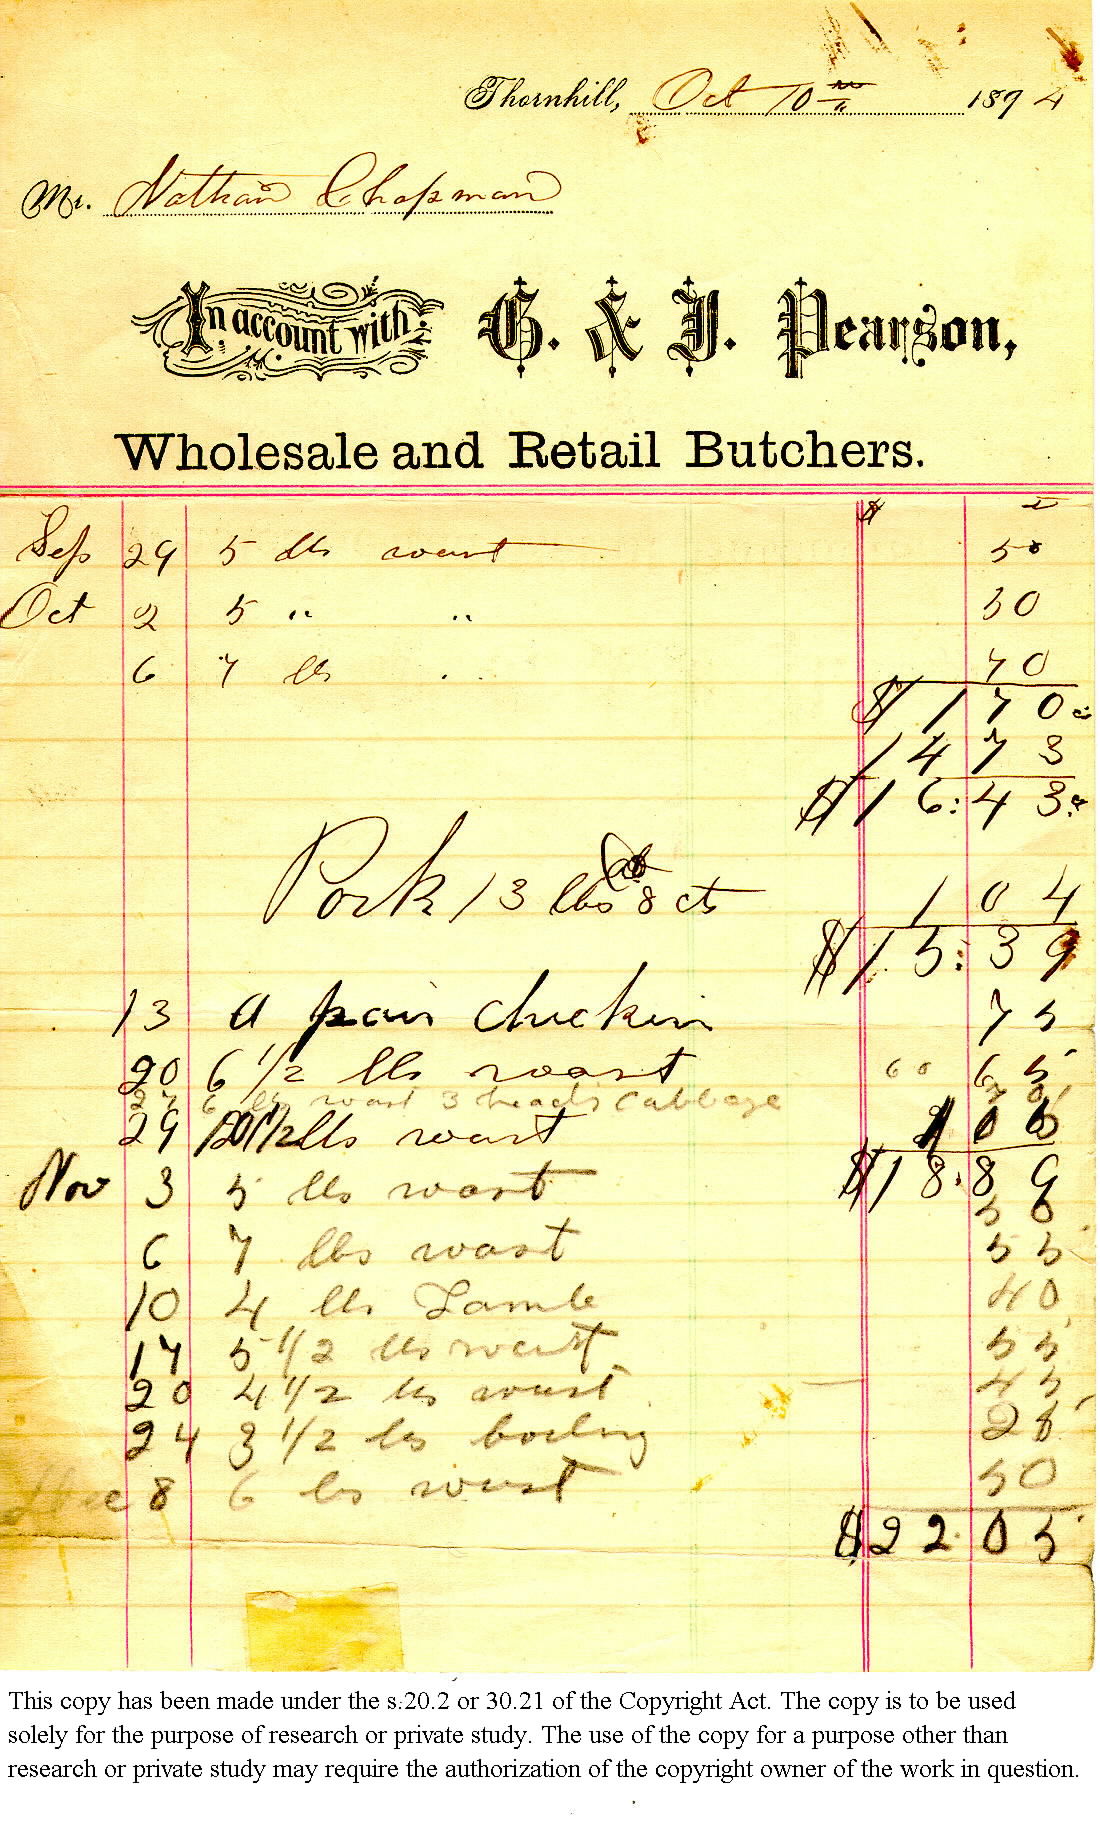 Thornhill, Oct 10th 1894
Mr. Nathan Chapman
In account with G. & J. Pearson,
Wholesale and Retail Butchers.
$ c
Sep 29 5 lbs roast 50
Oct 2 5 " " 50
6 7 lbs " 70
$1 70c
14 73
$16:43c
Pork 13 lbs at 8 cts 1 04
$15:39
13 a pair chickin 75
20 6 1/2 lbs roast 65
27 6 lbs roast 3 heads Cabbage 60 70
29 lbs roast
$18.89
Nov 3 5 lbs roast 50
6 7 lbs roast 55
10 4 lbs Lamb 40
17 5 1/2 lbs roast 55
20 4 1/2 lbs roast 45
24 3 1/2 lbs boiling 28
Dec 8 6 lbs roast 50
$22.05
This copy has been made under the s.20.2 or 30.21 of the Copyright Act. The copy is to be used
solely for the purpose of research or private study. The use of the copy for a purpose other than
research or private study may require the authorization of the copyright owner of the work in question.